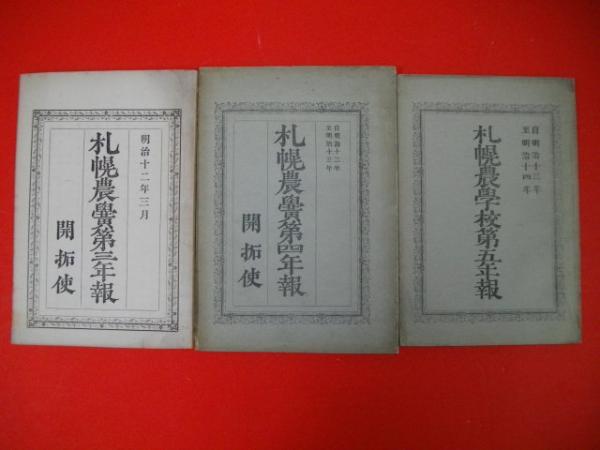 明治十二年三月
札幌農黌第三年報
開拓使
自明治十二年
至明治十三年
札幌農黌第四年報
開拓使
自明治十三年
至明治十四年
札幌農學校第五年報